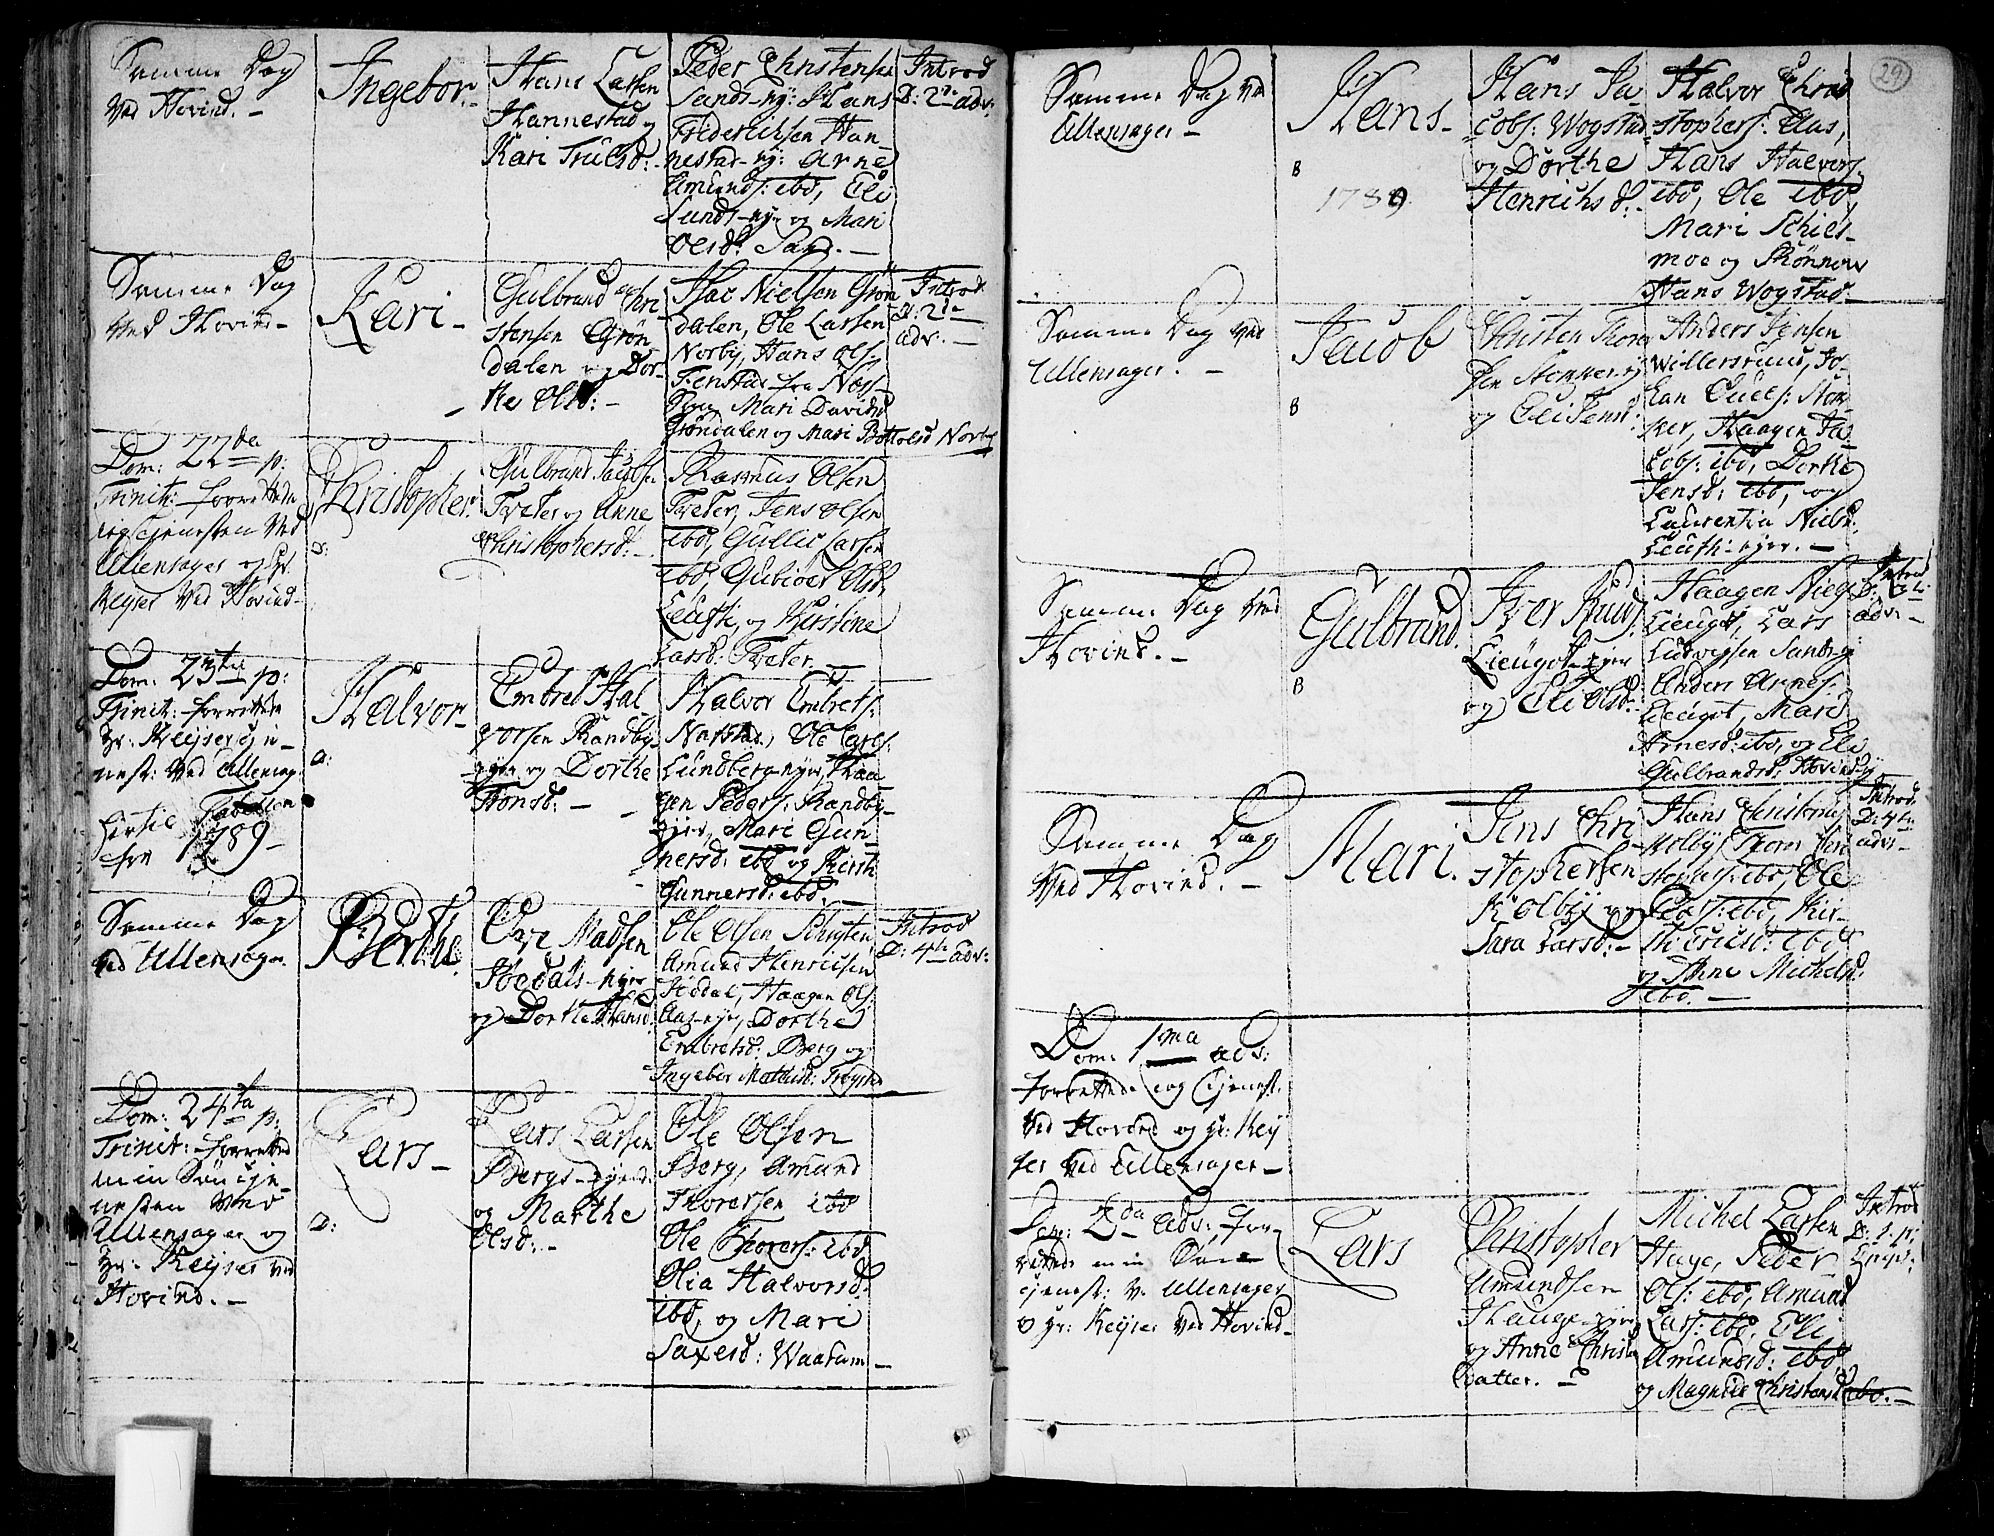 Samme Dag
ved Hovind. -
Ingebor. -
Hans Larsen
Hannestad og
Kari Trulsd: -
Peder Christensen
Sands-ny: Hans
Frederichsen Han-
nestad-ny: Arne
Amunds: ibd, Eli
Sunds-nye og Mari
Olsd: Sand. -
Introd
D: 2da adv:
Samme Dag
ved Hovind -
Kari -
Gulbrand Chri
stensen Grøn-
dalen og Dor-
the Olsd: -
Isac Nielsen Grøn
dalen, Ole Larsen
Norby, Hans Ols:
Fenstad fra Næs,
Mari Davids
Grøndalen og Mari Bottolsd Norby
Introd
D: 2da
adv. -
Dom: 22da p:
Trinit: forrettede
jeg tjenesten ved
Ullensager og Hr.
Keyser ved Hovind -
Christopher
D:
Gulbrand Jacobsen
Tveter og Anne
Christophersd: -
Rasmus Olsen
Tveter, Jens Olsen
ibd, Gullic Larsen
ibd, Gubiør Olsd.
og Kirstine
Larsd: Tveter. -
Dom: 23tia p:
Trinit: forrettede
Hr: Keyser tje-
nest: ved Ullensag:
hertil Tabellen
for 1789 -
Halvor -
D:
Embret Hal-
vorsen Randby-
eyer og Dorthe
Tronsd: -
Halvor Embrets:
Nafstad, Ole Carls:
Lundberg-nyer, Haa
gen Peders: Randby-
eyer, Mari Gun-
nersd: ibd og Kirsti
Gunnersd: ibd. -
Samme Dag
ved Ullensager.
Berthe.
Ove Madsen
Hoedals-nyer
og Dorthe Hansd.
Ole Olsen
Amund Henricsen
Hodal, Haagen Ols:
Aas-nyer, Dorthe
Embretsd: Berg og
Ingebor
Introd
D: 4th Adv:
Dom: 24ta p:
Trinit: forrettede
min Søn tje-
nesten ved
Ullensager og
Hr: Keyser ved
Hovind. -
Lars -
D:
Lars Larsen
Bergs-eyend:
og Marthe
Olsd: -
Ole Olsen
Berg, Amund
Thoresen ibd
Ole Thorers: ibd
Olia Halvorsd.
ibd, og Mari
Saxesd: Waatum -
29
Samme Dag ved
Ullensager -
Hans -
B
1789.
Hans Ja-
cobs: Wogstad
og Dorthe
Henrichsd: -
Halvor Chri
stophers: Aas,
Hans Halvors.
ibd, Ole ibd,
Mari Schies-
moe og
Hans Wogstad -
Samme Dag ved
Ullensager. -
Jacob
B
Christen Thore
sen
og Eli Jensd:
Anders Jensen
Willersruud, Jo-
han
Haagen Ja-
cobs: ibd, Dorthe
Jensd: ibd, og
Laurentia Nielsd:
Samme Dag ved
Hovind. -
Gulbrand.
B
Iver Knuds:
Lieugot-eyer
og Eli Olsd: -
Haagen Niels
Lieugot, Lars
Ludvigsen Sandby
Anders Arnes:
Lieugot, Mari
Arnesd: ibd, og Eli
Gulbrandsd: Hovind-ey
Introd
D: 4th:
adv: -
Samme Dag
ved Hovind. -
Mari.
Jens Chri
stophersen
Kolby og
Sara Larsd: -
Hans Christensen
Kolby, Thorer Chri
stophers: ibd, Ole
Peders: ibd, Kir-
sti Ericsd: ibd
og Anne Michelsd:
ibd. -
Introd.
D: 4th:
adv -
Dom: 1ma adv:
forrettede jeg tjenest:
ved Hovind og Hr: Key
ser ved Ullensager -
Dom: 2da Adv: for-
rettede min Søn
tjenest: v. Ullensager
og Hr: Keyser ved Hovind -
Lars
Christopher
Amundsen
Hauge-eyer
og Anne Christens
Datter. -
Michel Larsen
Hage, Peder
Ols: ibd, Amund
Lars: ibd, Eli
Amundsd: ibd,
og Magnild Christensd ibd. -
Introd
D: 1. p: